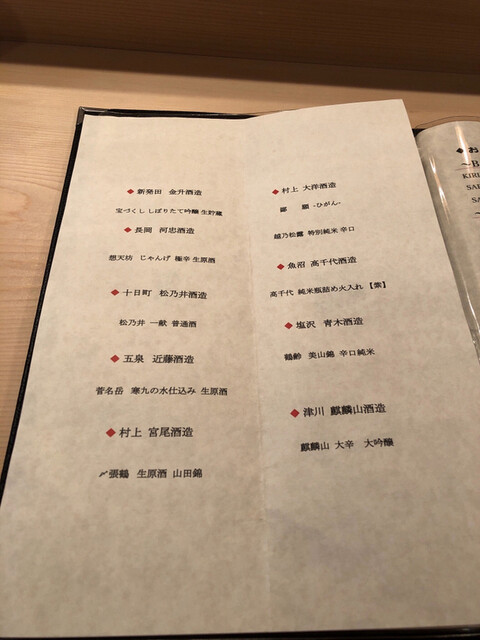 ◆新発田 金升酒造
宝づくし しぼりたて吟醸 生貯蔵
◆長岡 河忠酒造
想天坊 じゃんげ 極辛 生原酒
◆十日町 松乃井酒造
松乃井 一献 普通酒
◆五泉 近藤酒造
菅名岳 寒九の水仕込み 生原酒
◆村上 宮尾酒造
〆張鶴 生原酒 山田錦
◆村上 大洋酒造
-ひがん-
越乃松露 特別純米 辛口
◆魚沼 高千代酒造
高千代 純米瓶詰め火入れ 【紫】
◆塩沢 青木酒造
鶴齢 美山錦 辛口純米
◆津川 麒麟山酒造
麒麟山 大辛 大吟醸
◆お
~B
KIRI
SA
SA